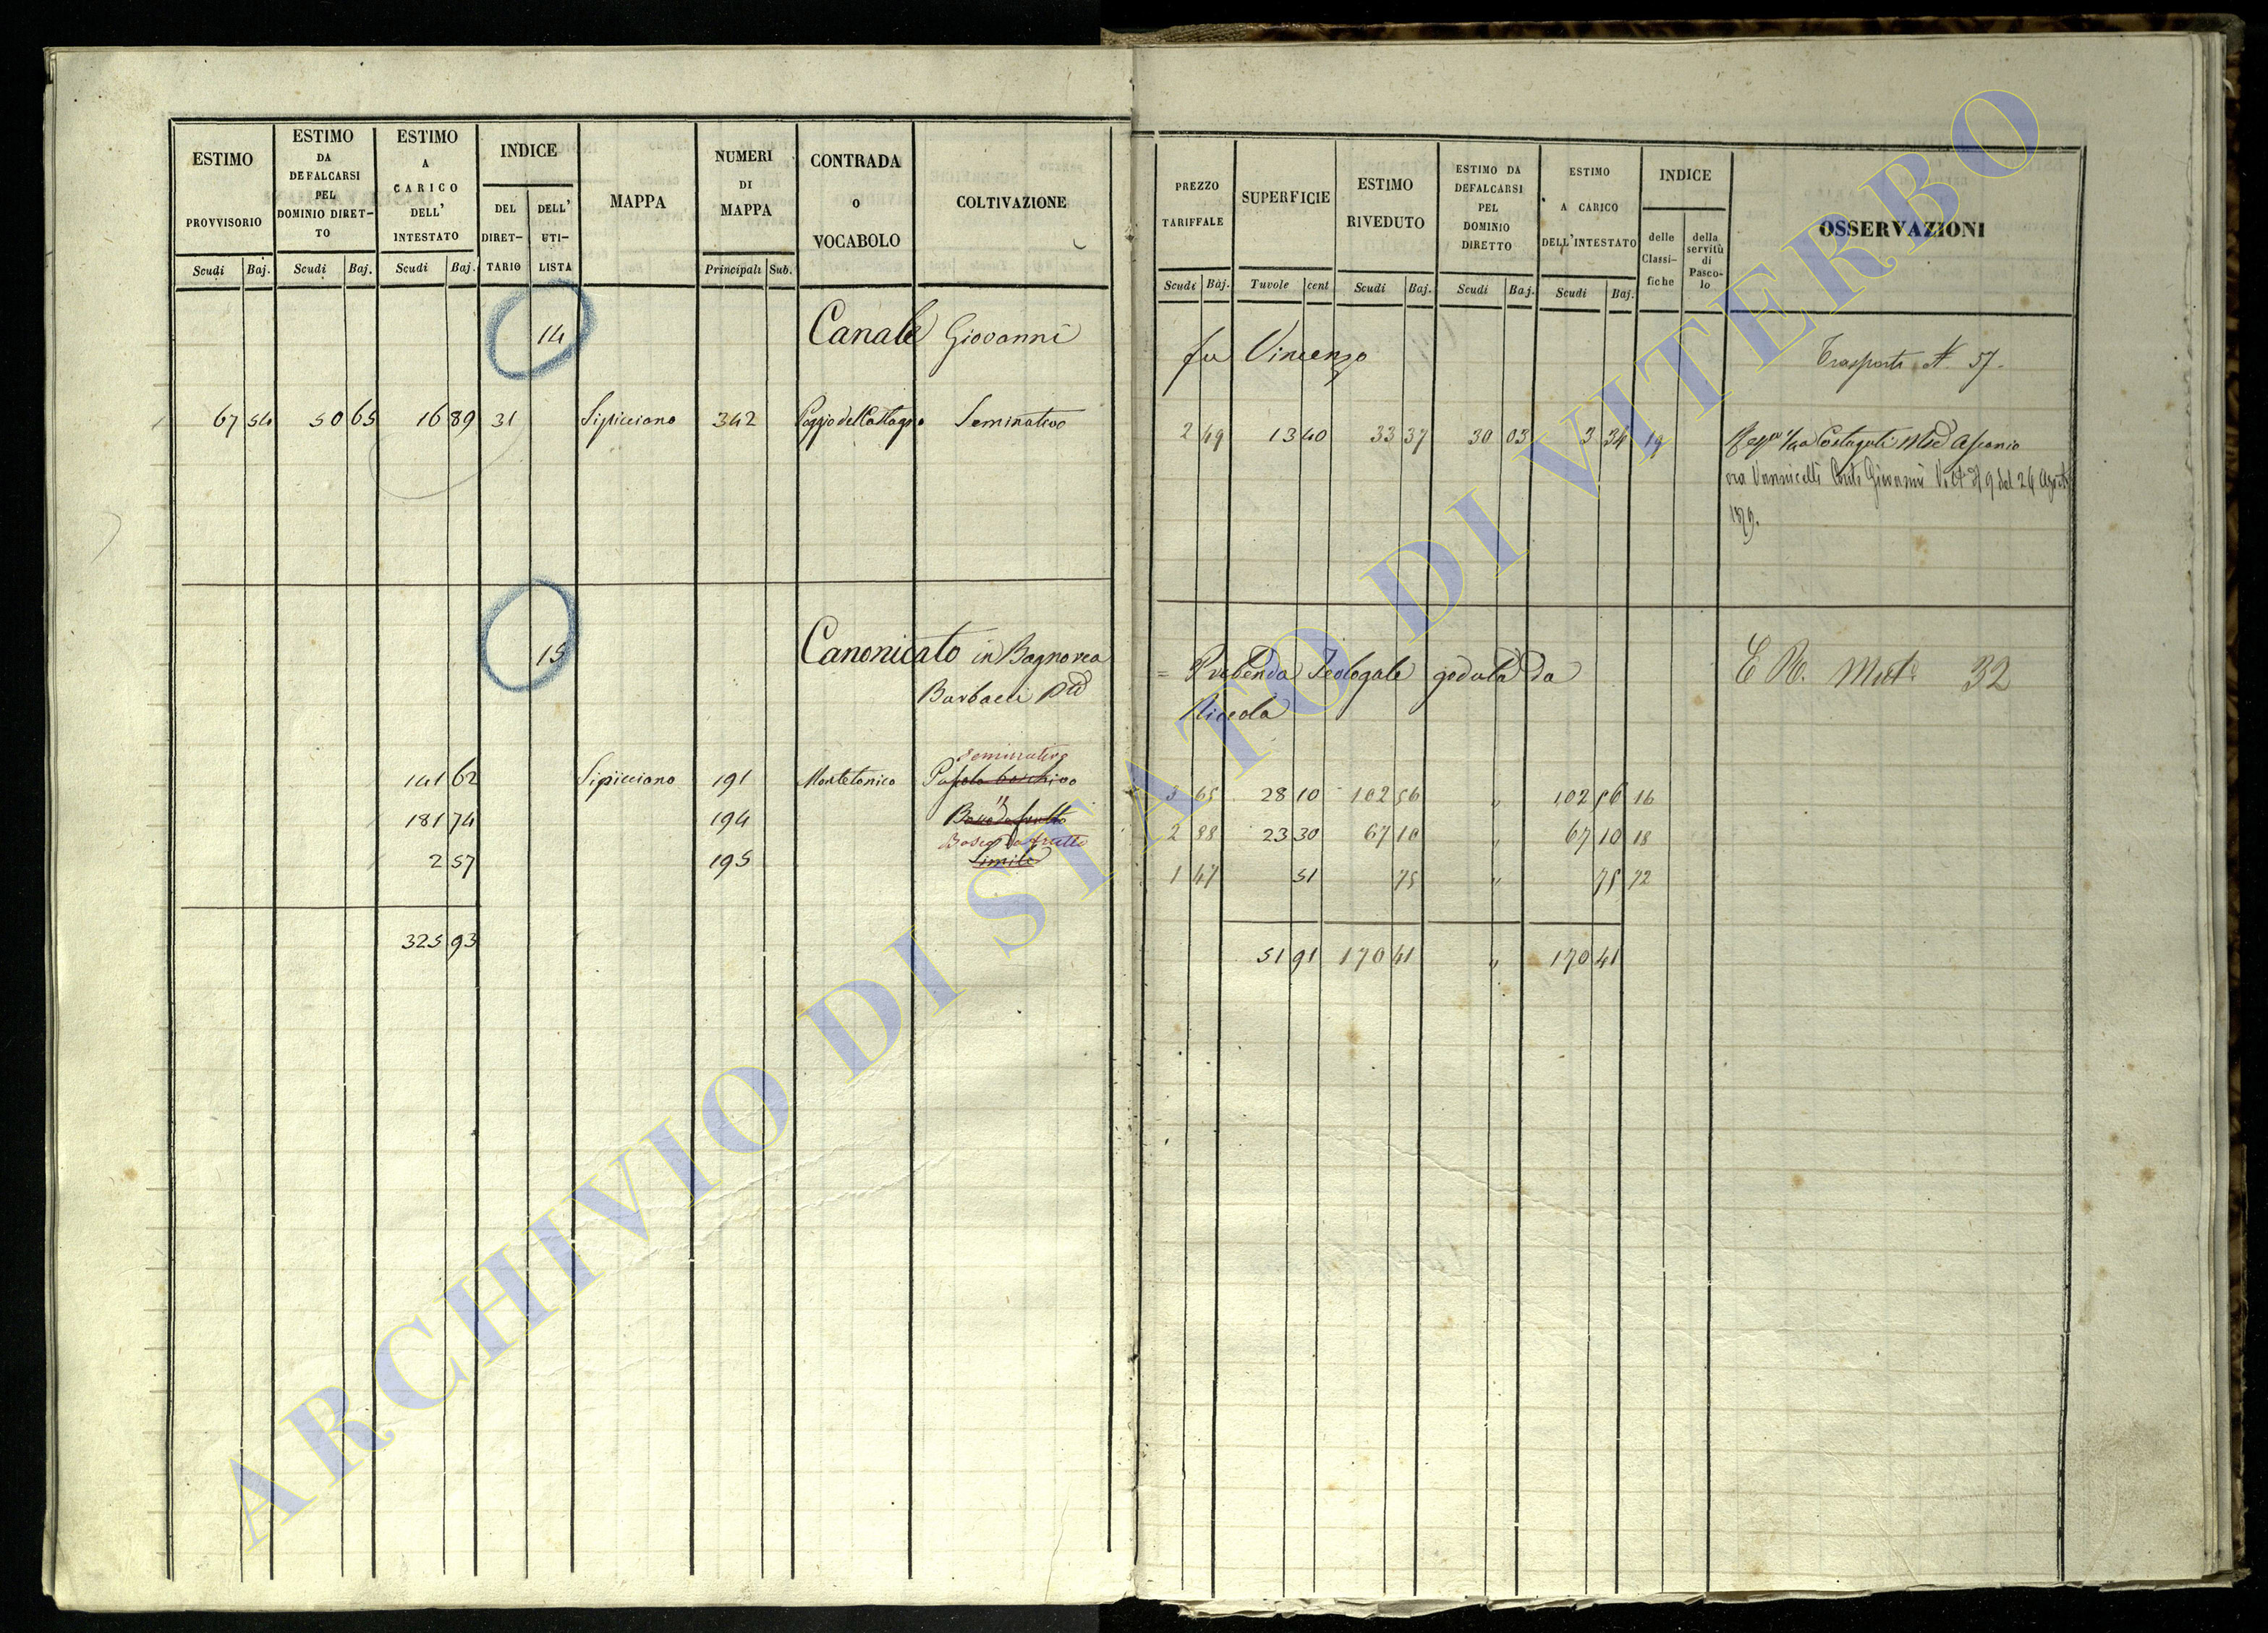 ESTIMO PROVVISORIO
Scudi Baj.
ESTIMO DA DEFALCARSI PEL DOMINIO DIRET-TO
Scudi Baj.
ESTIMO A CARICO DELL' INTESTATO
Scudi Baj.
INDICE
DEL DIRET-TARIO
DELL' UTI-LISTA
MAPPA
NUMERI DI MAPPA
Principali Sub.
CONTRADA o VOCABOLO
COLTIVAZIONE
PREZZO TARIFFALE
Scudi Baj.
SUPERFICIE
Tavole cent
ESTIMO RIVEDUTO
Scudi Baj.
ESTIMO DA DEFALCARSI PEL DOMINIO DIRETTO
Scudi Baj.
ESTIMO A CARICO DELL'INTESTATO
Scudi Baj.
INDICE
delle Classi-fiche
della servitù di Pasco-lo
OSSERVAZIONI
14 Canale Giovanni fu Vincenzo Trasporto N. 57.
67 54 50 65 16 89 31 Sipicciano 342 Seminativo 2 49 13 40 33 37 30 03 3 34 19
Ascanio
ora Vannicelli Conte Giovanni 9 del 24
1879.
15 Canonicato in Bagnorea = Prebenda Teologale goduta da
Barbacci Nicola
32
Seminativo
141 62 Sipicciano 191 Montetonico Pascolo boschivo 3 65 28 10 102 56 " 102 56 16
"
181 74 194 Bosco da frutto 2 88 23 30 67 10 " 67 10 18
Bosco da frutto
2 57 195 Simile 1 47 51 75 " 75 72
325 93 51 91 170 41 " 170 41
ARCHIVIO DI STATO DI VITERBO